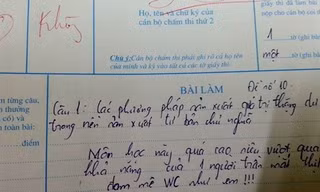 Khô
Họ, tên và chữ ký của
cán bộ chấm thi thứ 2
giấy thi đã làm bài
nộp cho cán bộ coi thi
1 tờ (ghi bằng
một tờ (ghi bằng
Chú ý: Cán bộ chấm thi phải ghi rõ cả họ tên
của mình và ký vào tất cả các tờ giấy thi
BÀI LÀM
Đề số 10
m từng câu,
n thưởng
có) và
toàn bài:
... điểm
Câu 1: Các phương pháp sản xuất giá trị thặng dư
trong nền sản xuất tư bản chủ nghĩa
Môn học này quá cao siêu vượt quá
khả năng của 1 người trần mắt thịt
đam mê WC như em!!!